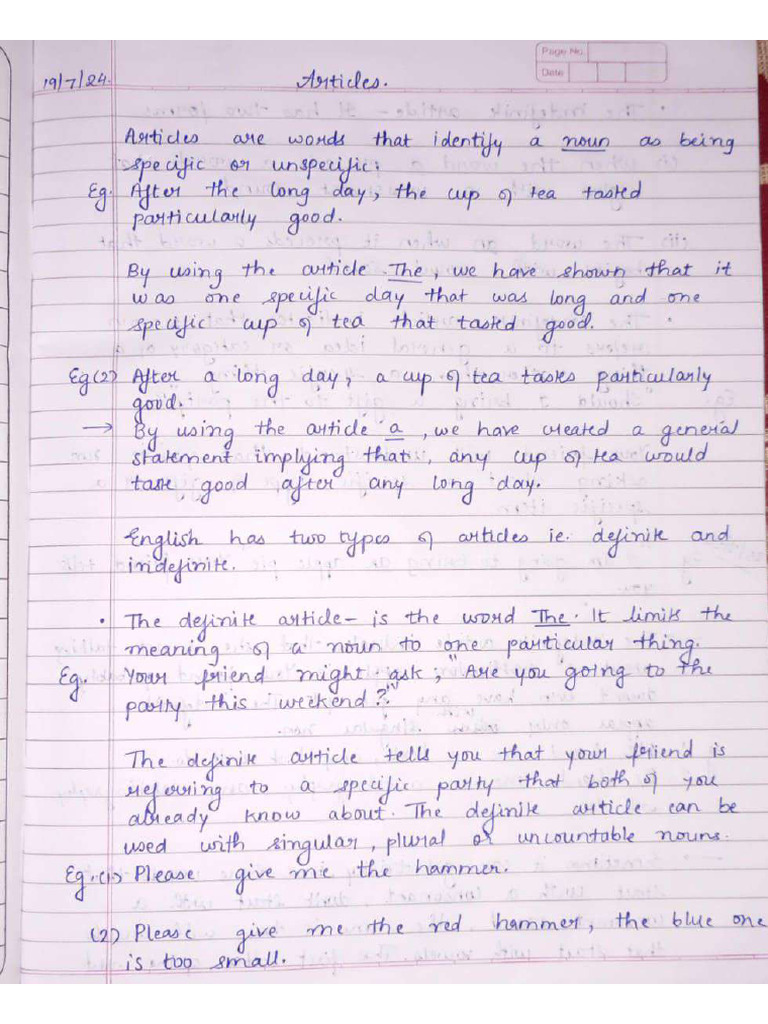 Page No.
Date
19/7/24. Articles.
Articles are words that identify a noun as being
specific or unspecific:
Eg. After the long day, the cup of tea tasted
particularly good.
By using the article The, we have shown that it
was one specific day that was long and one
specific cup of tea that tasted good.
Eg (2) After a long day, a cup of tea tastes particularly
good.
→ By using the article a, we have created a general
statement implying that, any cup of tea would
taste good after any long day.
English has two types of articles ie. definite and
indefinite.
• The definite article- is the word The. It limits the
meaning of a noun to one particular thing.
Eg. Your friend might ask, "Are you going to the
party this weekend?"
The definite article tells you that your friend is
referring to a specific party that both of you
already know about. The definite article can be
used with singular, plural or uncountable nouns.
Eg. (1) Please give me the hammer.
(2) Please give me the red hammer, the blue one
is too small.